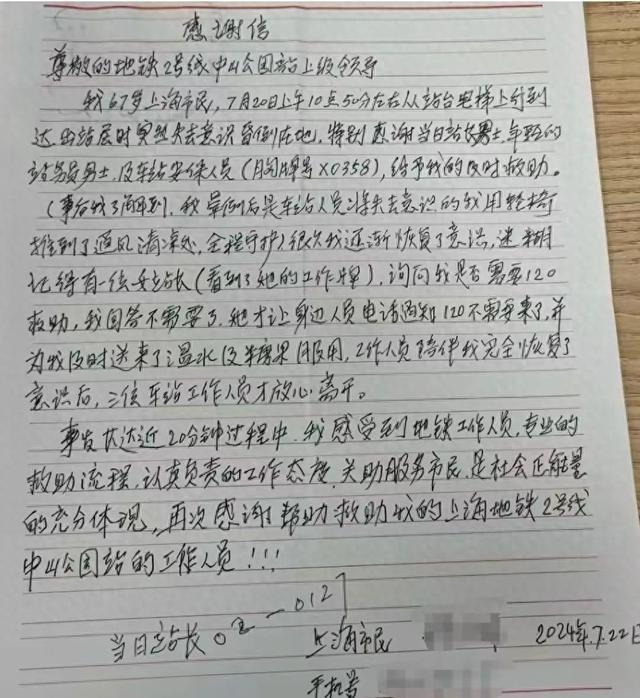 感谢信
尊敬的地铁2号线中山公园站上级领导
我67岁上海市民，7月20日上午10点50分左右从站台电梯上行到
达出站层时突然失去意识晕倒在地，特别感谢当日站长男士、年轻的
站务员男士，及车站安保人员（胸牌号X0358），给予我的及时救助。
（事后我了解到，我晕倒后是车站人员将失去意识的我用轮椅
推到了通风清凉处，全程守护）很久我逐渐恢复了意识，迷糊
记得有一位女站长（看到了她的工作牌），询问我是否需要120
救助，我回答不需要了，她才让身边人员电话通知120不需要来了，并
为我及时送来了温水及半糖果服用，工作人员陪伴我完全恢复了
意识后，三位车站工作人员才放心离开。
事发长达近20分钟过程中，我感受到地铁工作人员，专业的
救助流程，认真负责的工作态度，关助服务市民，是社会正能量
的充分体现，再次感谢帮助救助我的上海地铁2号线
中山公园站的工作人员！！！
当日站长02-012
上海市民 2024年.7.22日
手机号